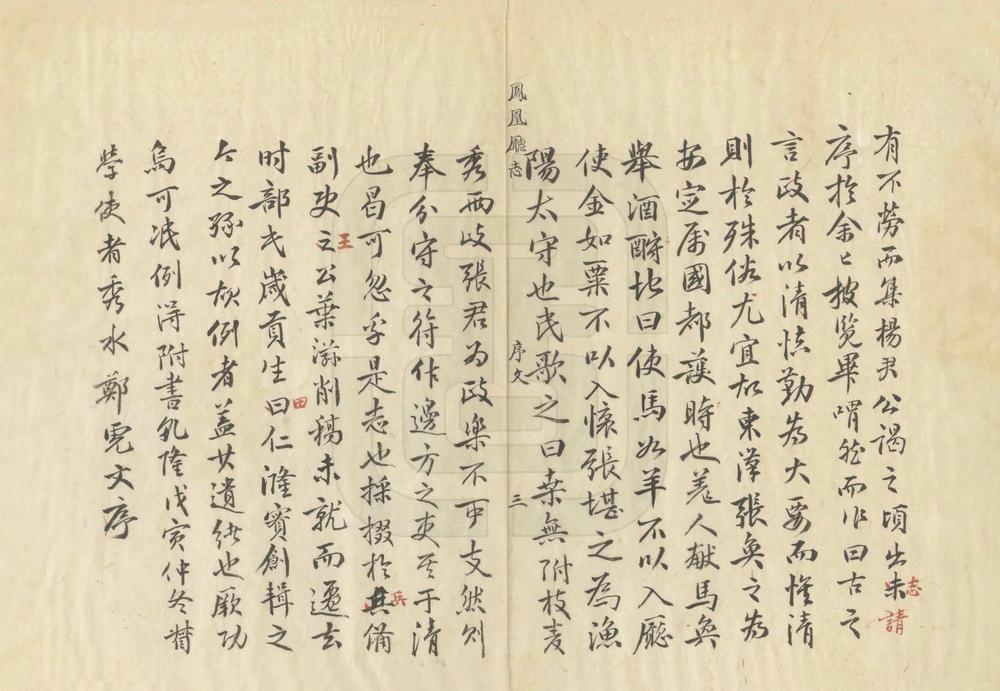 有不勞而集楊君公謁之頃出朱志請
序於余〻披覽畢喟然而作曰古之
言政者以清慎勤為大要而惟清
則於殊俗尤宜如東漢張奐之為
安定属國都護時也羌人献馬奐
舉酒酹地曰使馬如羊不以入廄
使金如粟不以入懷張堪之為漁
陽太守也民歌之曰桑無附枝麦
鳳凰廳志 序文 三
秀两歧張君為政樂不可支然则
奉分守之符作邊方之吏其于清
也曷可忽乎是志也採掇於其兵俻
副吏之王公葉滋削稿未就而遷去
时部民歲貢生曰田仁滙實創輯之
今之以例者盖其遺緒也厥功
焉可泯例得附書乾隆戊寅仲冬督
學使者秀水鄭虎文序